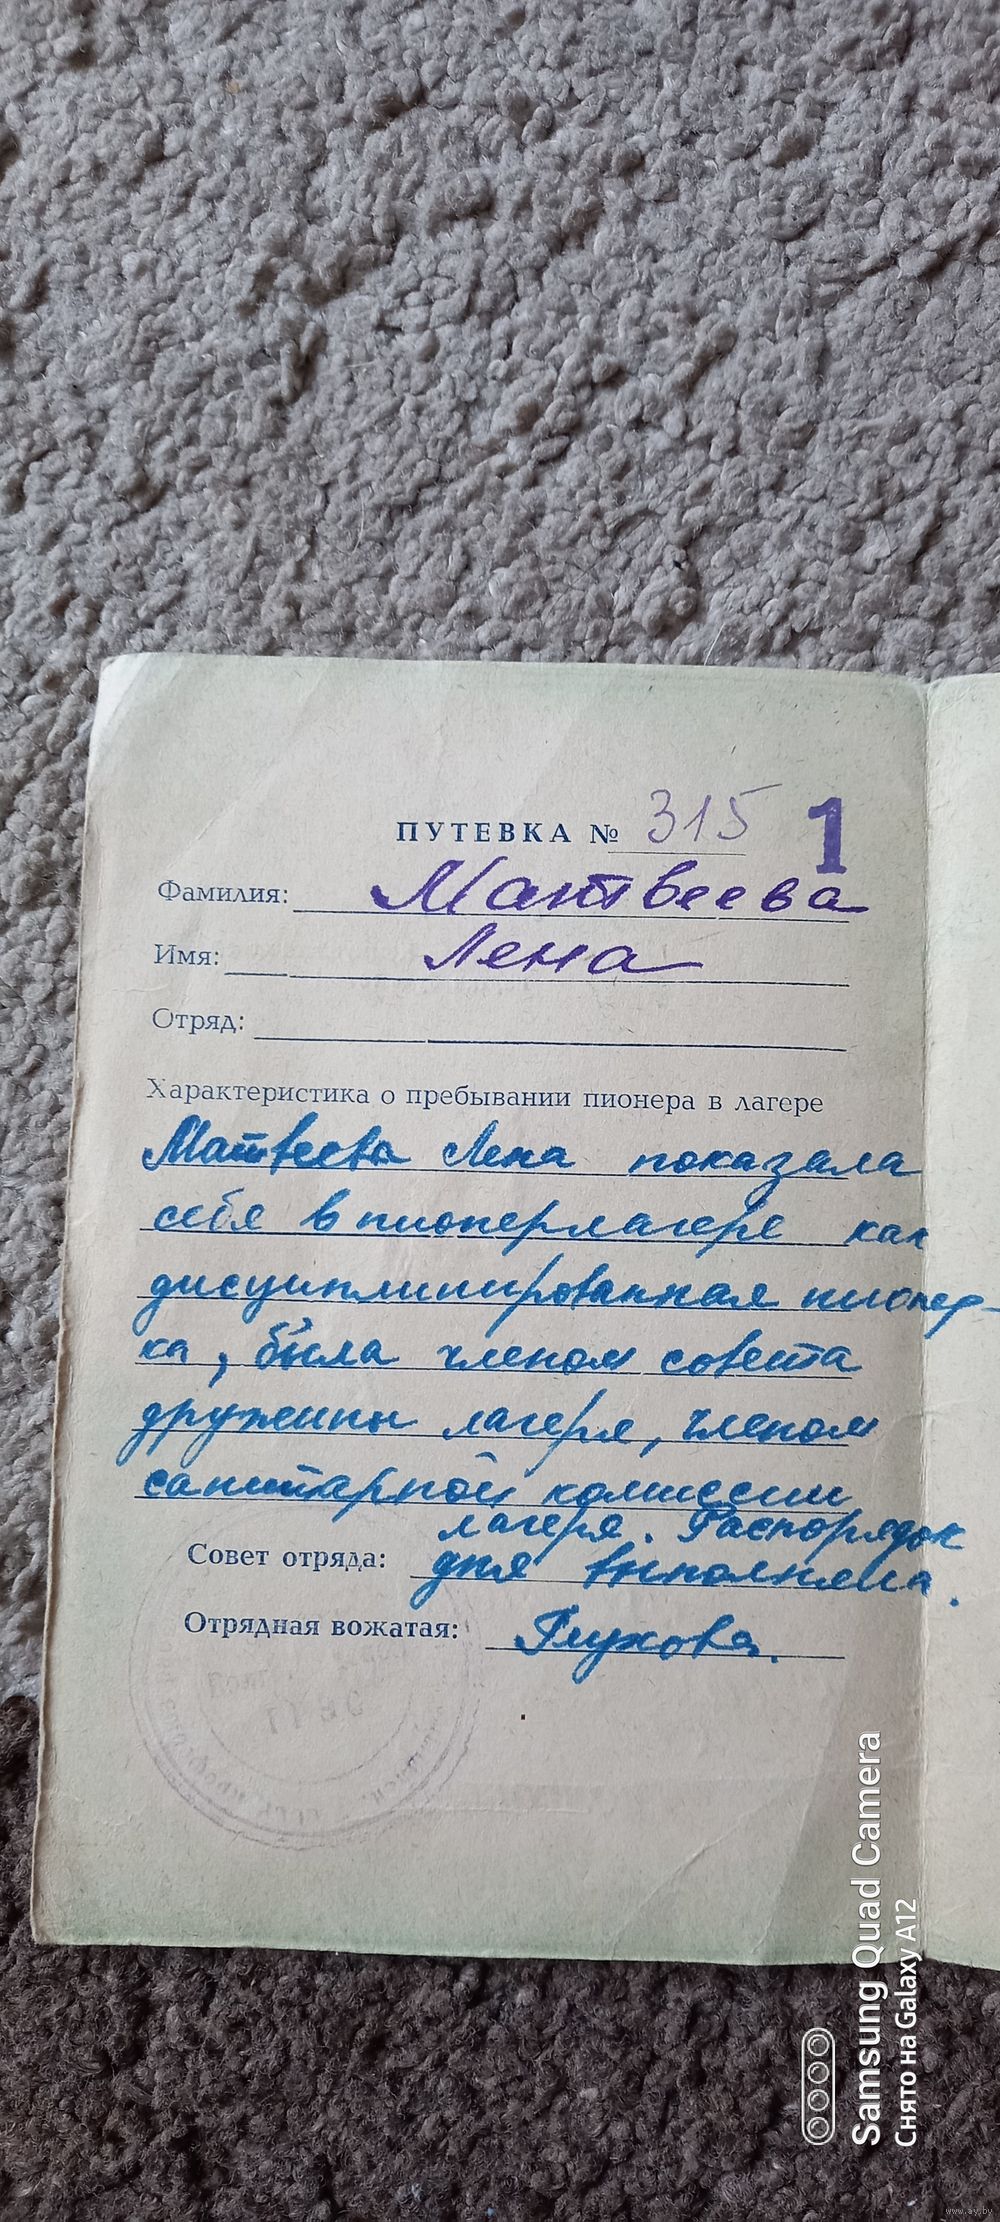 ПУТЕВКА № 315 1
Фамилия: Матвеева
Имя: Лена
Отряд:
Характеристика о пребывании пионера в лагере
Матвеева Лена показала
себя в пионерлагере как
дисциплинированная пионер-
ка, была членом совета
дружины лагеря, членом
санитарной комиссии
лагеря. Распорядок
Совет отряда: дня выполняла.
Отрядная вожатая: Глухова.
Samsung Quad Camera
Снято на Galaxy A12
www.ay.by